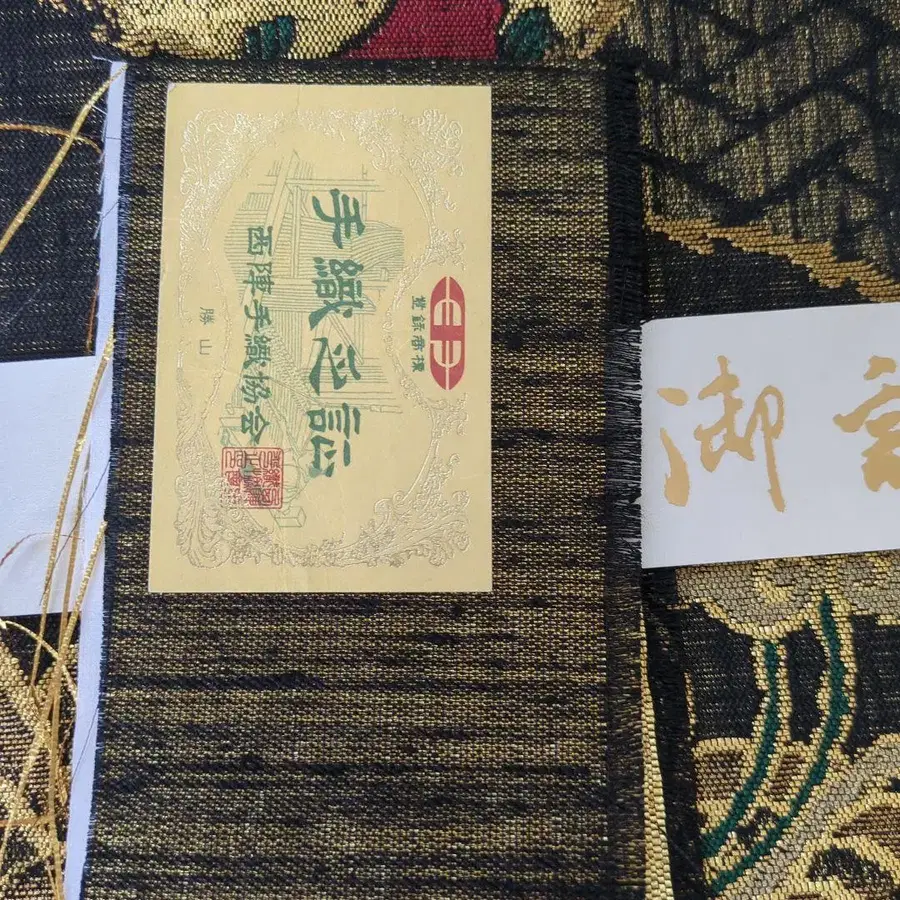 登録商標
手織之証
西陣手織協会
勝山
御